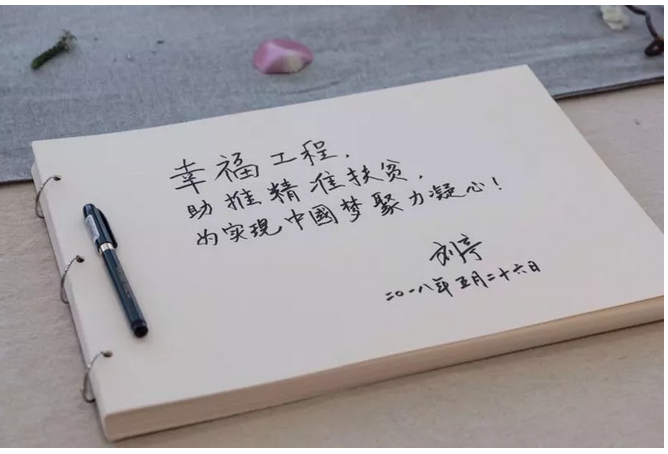 幸福工程，
助推精准扶贫，
为实现中國梦聚力凝心！
刘亭
二〇一八年五月二十六日